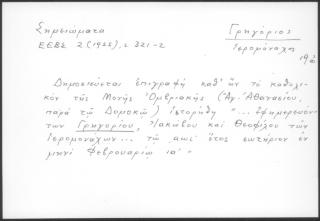 Σημειώματα
Γρηγόριος
ΕΕΒΣ 2 (1925), σ. 321-2
ἱερομόναχος
19ος
Δημοσιεύεται ἐπιγραφή καθ' ἥν τό καθολι-
κόν τῆς Μονῆς Ὀμβριακῆς (Ἁγ. Ἀθανασίου,
παρά τῷ Δομοκῷ) ἱστορήθη "... ἐφημερευόν-
των Γρηγορίου, Ἰακώβου καί Θεοφίλου τῶν
ἱερομονάχων... τῷ αωι' ἔτος σωτήριον ἐν
μηνί Φεβρουαρίῳ ια' "